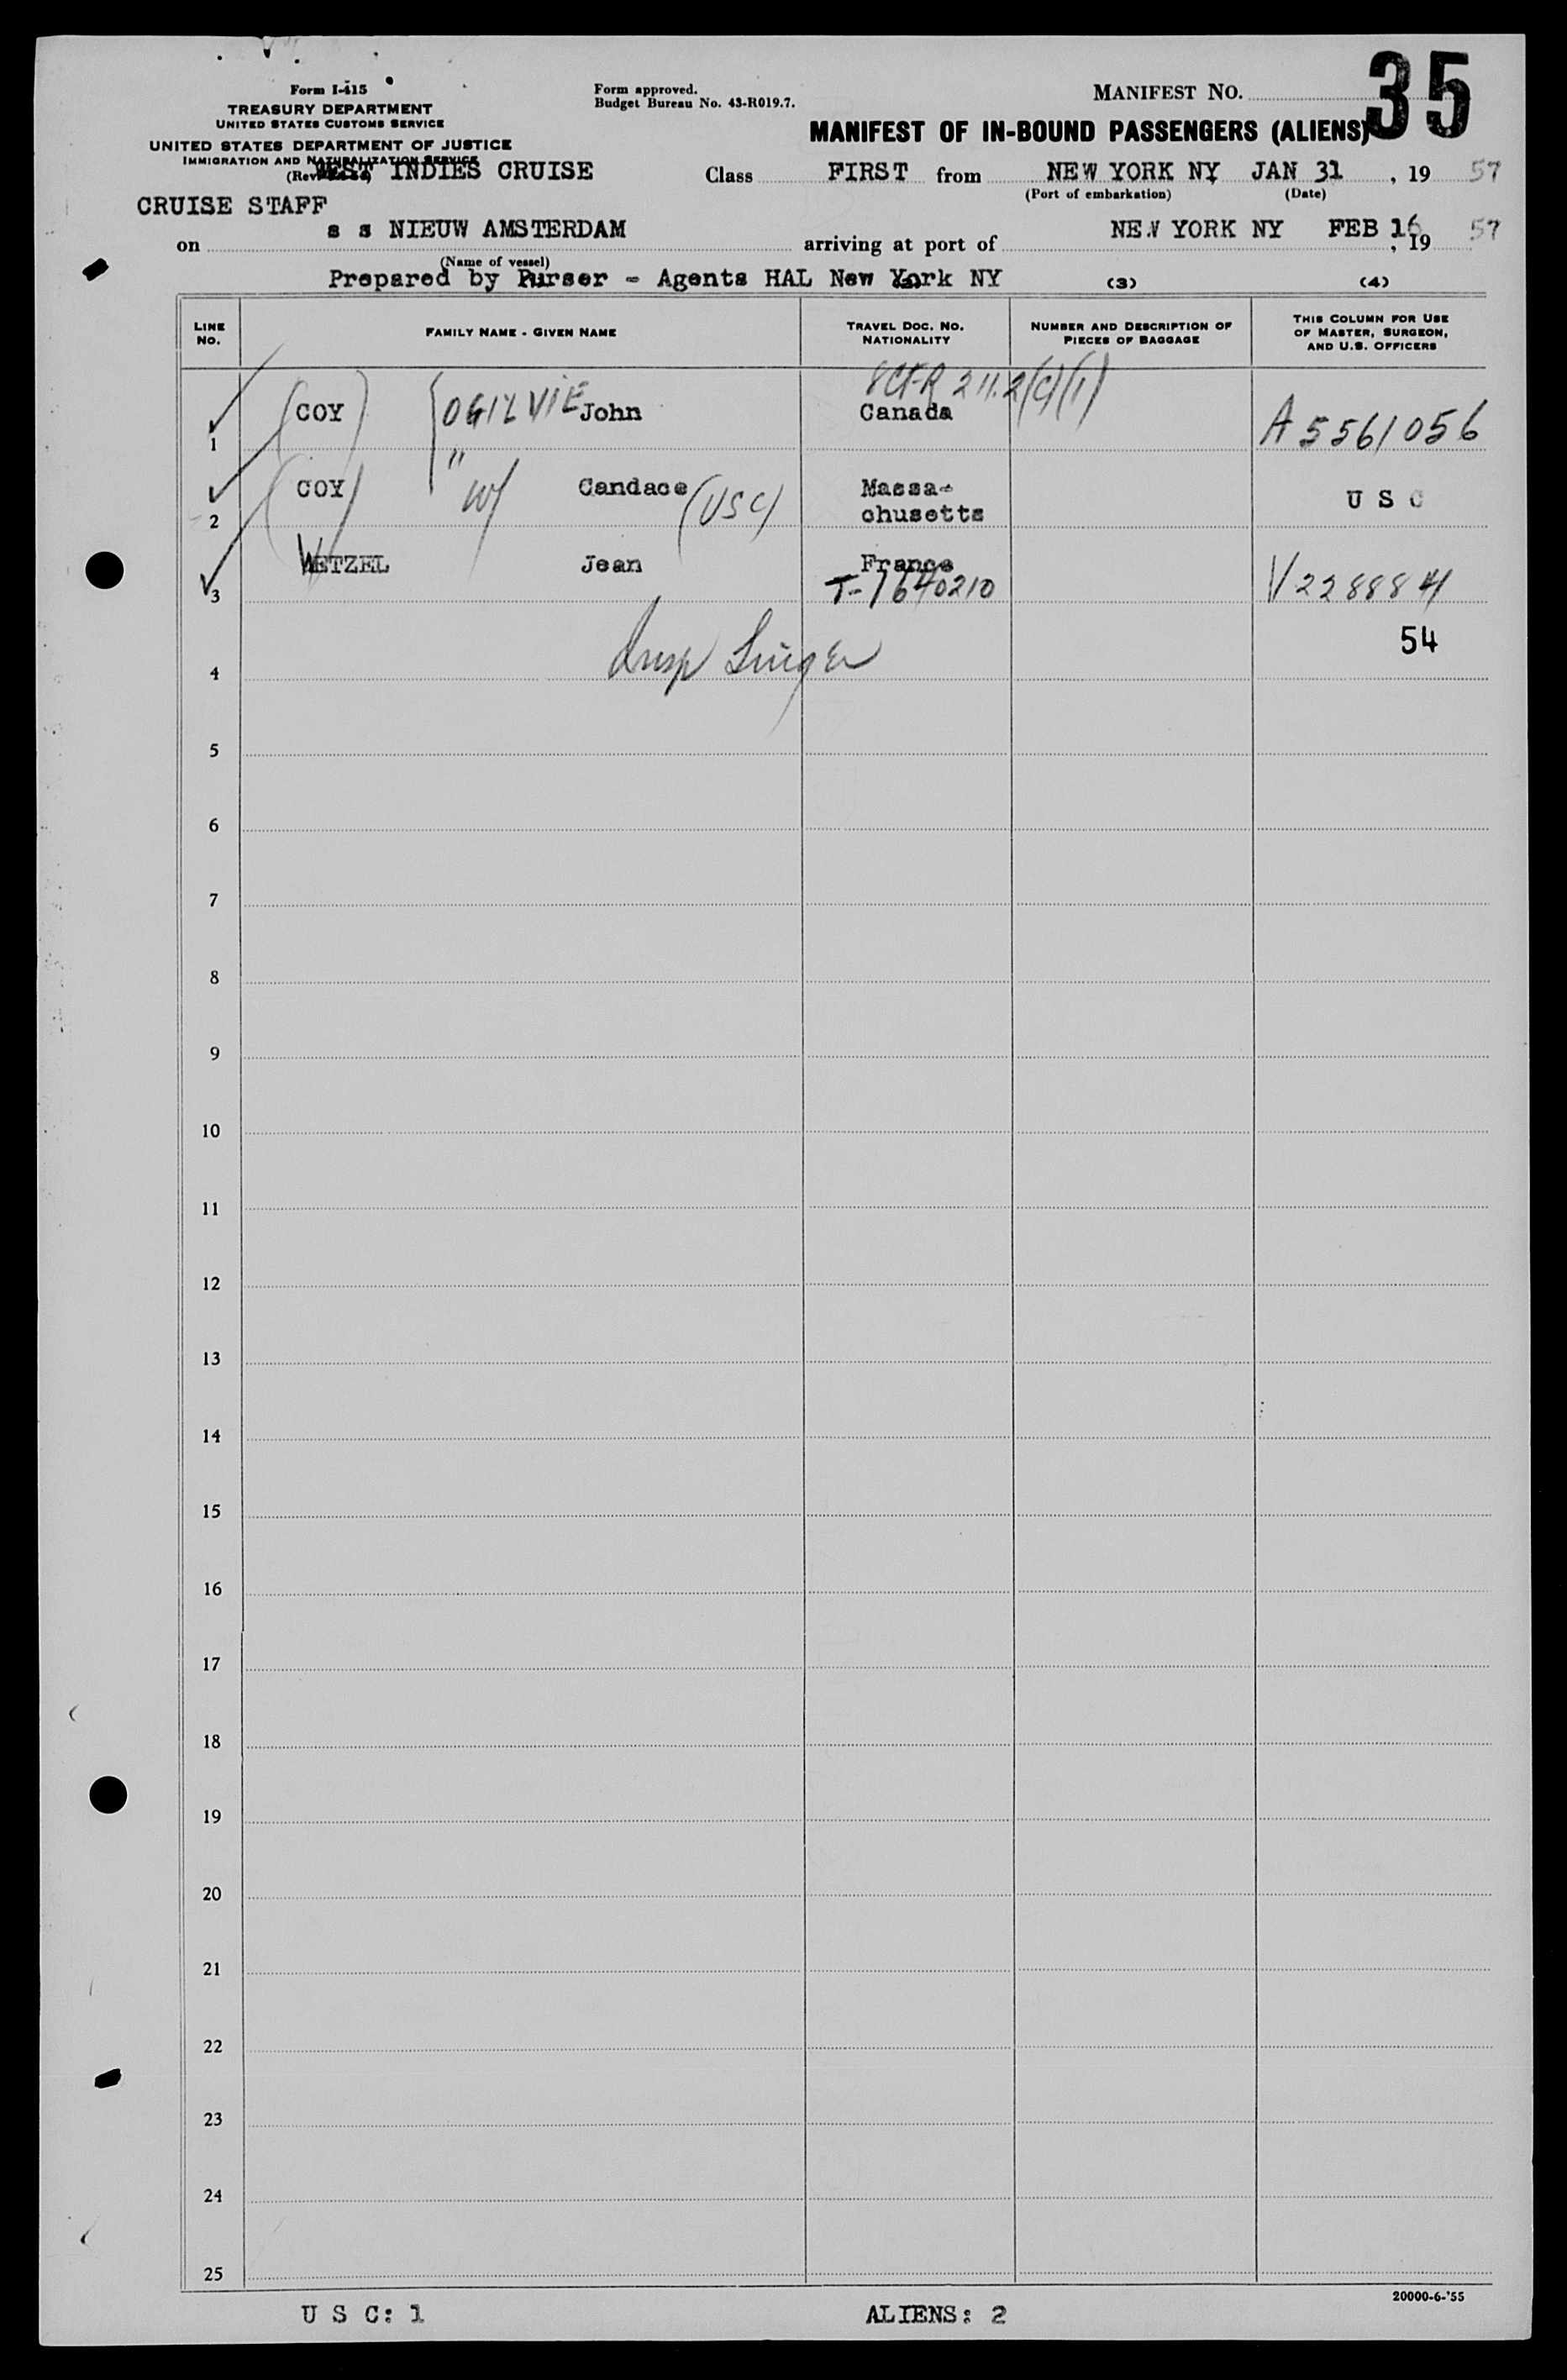 Form I-415
TREASURY DEPARTMENT
UNITED STATES CUSTOMS SERVICE
UNITED STATES DEPARTMENT OF JUSTICE
IMMIGRATION AND NATURALIZATION SERVICE
Form approved.
Budget Bureau No. 43-R019.7.
MANIFEST NO. 35
MANIFEST OF IN-BOUND PASSENGERS (ALIENS)
WEST INDIES CRUISE Class FIRST from NEW YORK NY JAN 31, 19 57
(Port of embarkation) (Date)
CRUISE STAFF
on s s NIEUW AMSTERDAM arriving at port of NEW YORK NY FEB 16, 19 57
(Name of vessel)
Prepared by Purser - Agents HAL New York NY (3) (4)
LINE NO. FAMILY NAME - GIVEN NAME TRAVEL DOC. NO. NATIONALITY NUMBER AND DESCRIPTION OF PIECES OF BAGGAGE THIS COLUMN FOR USE OF MASTER, SURGEON, AND U.S. OFFICERS
8CFR 211.2(c)(1)
1 (COY) OGILVIE John Canada A5561056
2 (COY) " W/ Candace (USC) Massa-
chusetts U S C
3 WETZEL Jean France
T-1640210 V228884
54
4 Insp Singer
5
6
7
8
9
10
11
12
13
14
15
16
17
18
19
20
21
22
23
24
25
20000-6-'55
U S C: 1 ALIENS: 2